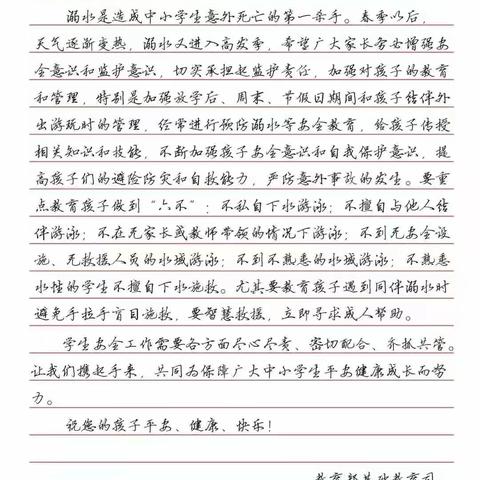 溺水是造成中小学生意外死亡的第一杀手。春季以后，
天气逐渐变热，溺水又进入高发季，希望广大家长务必增强安
全意识和监护意识，切实承担起监护责任，加强对孩子的教育
和管理，特别是加强放学后、周末、节假日期间和孩子结伴外
出游玩时的管理，经常进行预防溺水等安全教育，给孩子传授
相关知识和技能，不断加强孩子安全意识和自我保护意识，提
高孩子们的避险防灾和自救能力，严防意外事故的发生。要重
点教育孩子做到“六不”：不私自下水游泳；不擅自与他人结
伴游泳；不在无家长或教师带领的情况下游泳；不到无安全设
施、无救援人员的水域游泳；不到不熟悉的水域游泳；不熟悉
水性的学生不擅自下水施救。尤其要教育孩子遇到同伴溺水时
避免手拉手盲目施救，要智慧救援，立即寻求成人帮助。
学生安全工作需要各方面尽心尽责、密切配合、齐抓共管。
让我们携起手来，共同为保障广大中小学生平安健康成长而努
力。
祝您的孩子平安、健康、快乐！
教育部基础教育司